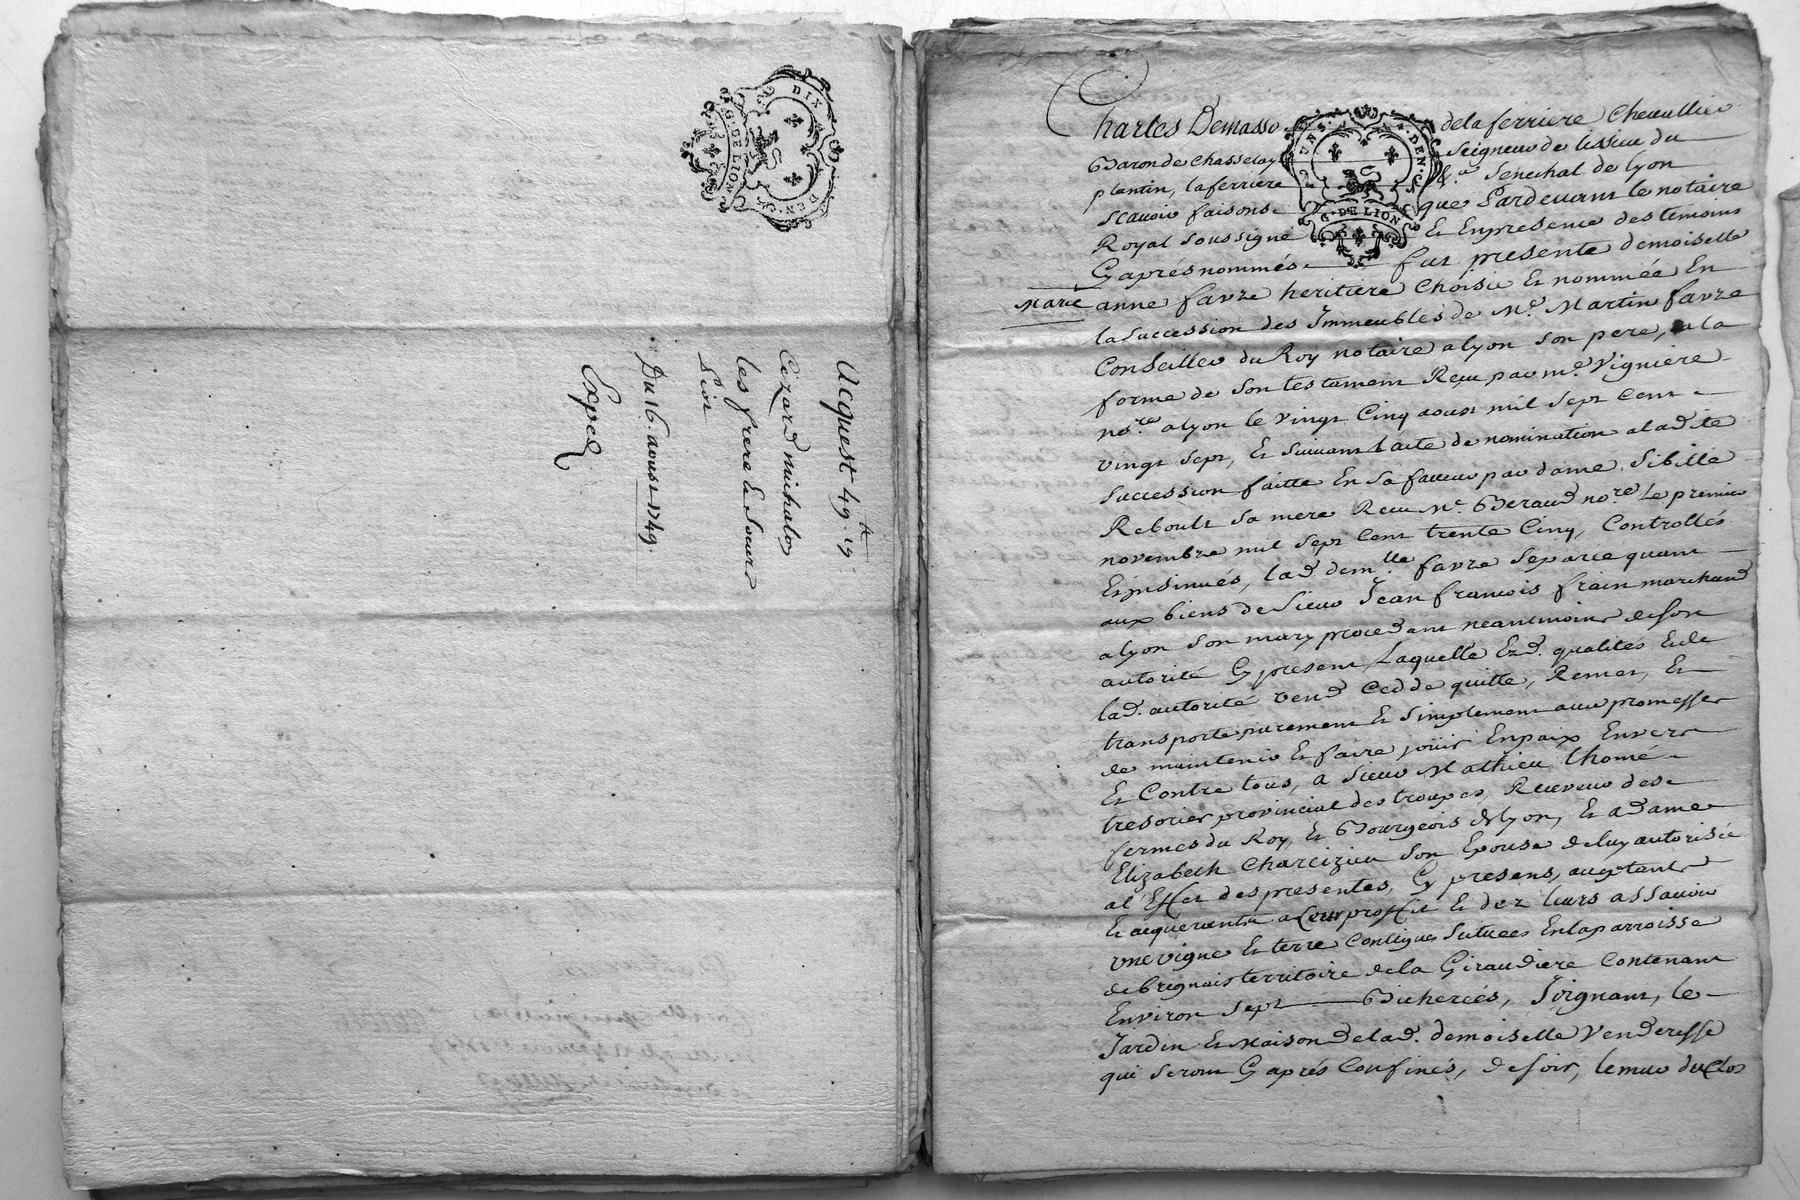 DIX DEN.
G. DE LION
Acquest 49.
Cezard michalon
les frere & soeurs
Du 16. aoust 1749.
Exped
DEUX S. DEN.
G. DE LION
Charles Demasso de la ferriere Cheuallier
Baron de Chasselay Seigneur de lissieu du
plantin, la ferriere &.a Senechal de lyon
Scauoir faisons que Pardeuant le notaire
Royal soussigné Et Enpresence des temoins
Cy aprés nommés fut presente demoiselle
Marie anne favre heritiere Choisie Et nommée En
la succession des Immeubles de M.e Martin favre
Conseiller du Roy notaire a lyon son pere, a la
forme de Son testament Receu par m.e Vigniere
no.re a lyon le vingt Cinq aoust mil sept Cent
vingt sept, Et Suivant l'acte de nomination a lad.te
succession faitte En sa faueur par dame Sibille
Reboult sa mere Receu M.e Beraud no.re Le premier
novembre mil sept Cent trente Cinq, Controllés
Et jnsinués, lad. dem.lle favre Separée quant
aux biens de Sieur Jean francois frain marchand
a lyon Son mary procedant neantmoins de son
autorité Cy present, Laquelle Ezd. qualités Et de
lad. autorité vend Cedde quitte, Remet, Et
transporte purement Et Simplement auec promesse
de maintenir Et faire joüir Enpaix Envers
Et Contre tous, a Sieur Mathieu thomé
tresorier provincial des troupes, Receveur des
fermes du Roy, Et Bourgeois de lyon, Et a dame
Elizabeth Charezieu Son Epouse de luy autorisée
al'Effet des presentes, Cy presens, acceptants
Et acquerants a Leur proffit Et dez leurs assauoir
une vigne Et terre Contigues Situees En la parroisse
de brignais territoire de la Giraudiere Contenant
Environ sept Bicherées, Joignant, le
Jardin Et Maison de lad. demoiselle Venderesse
qui Seront Cy aprés Confinés, de soir, le mur du Clos